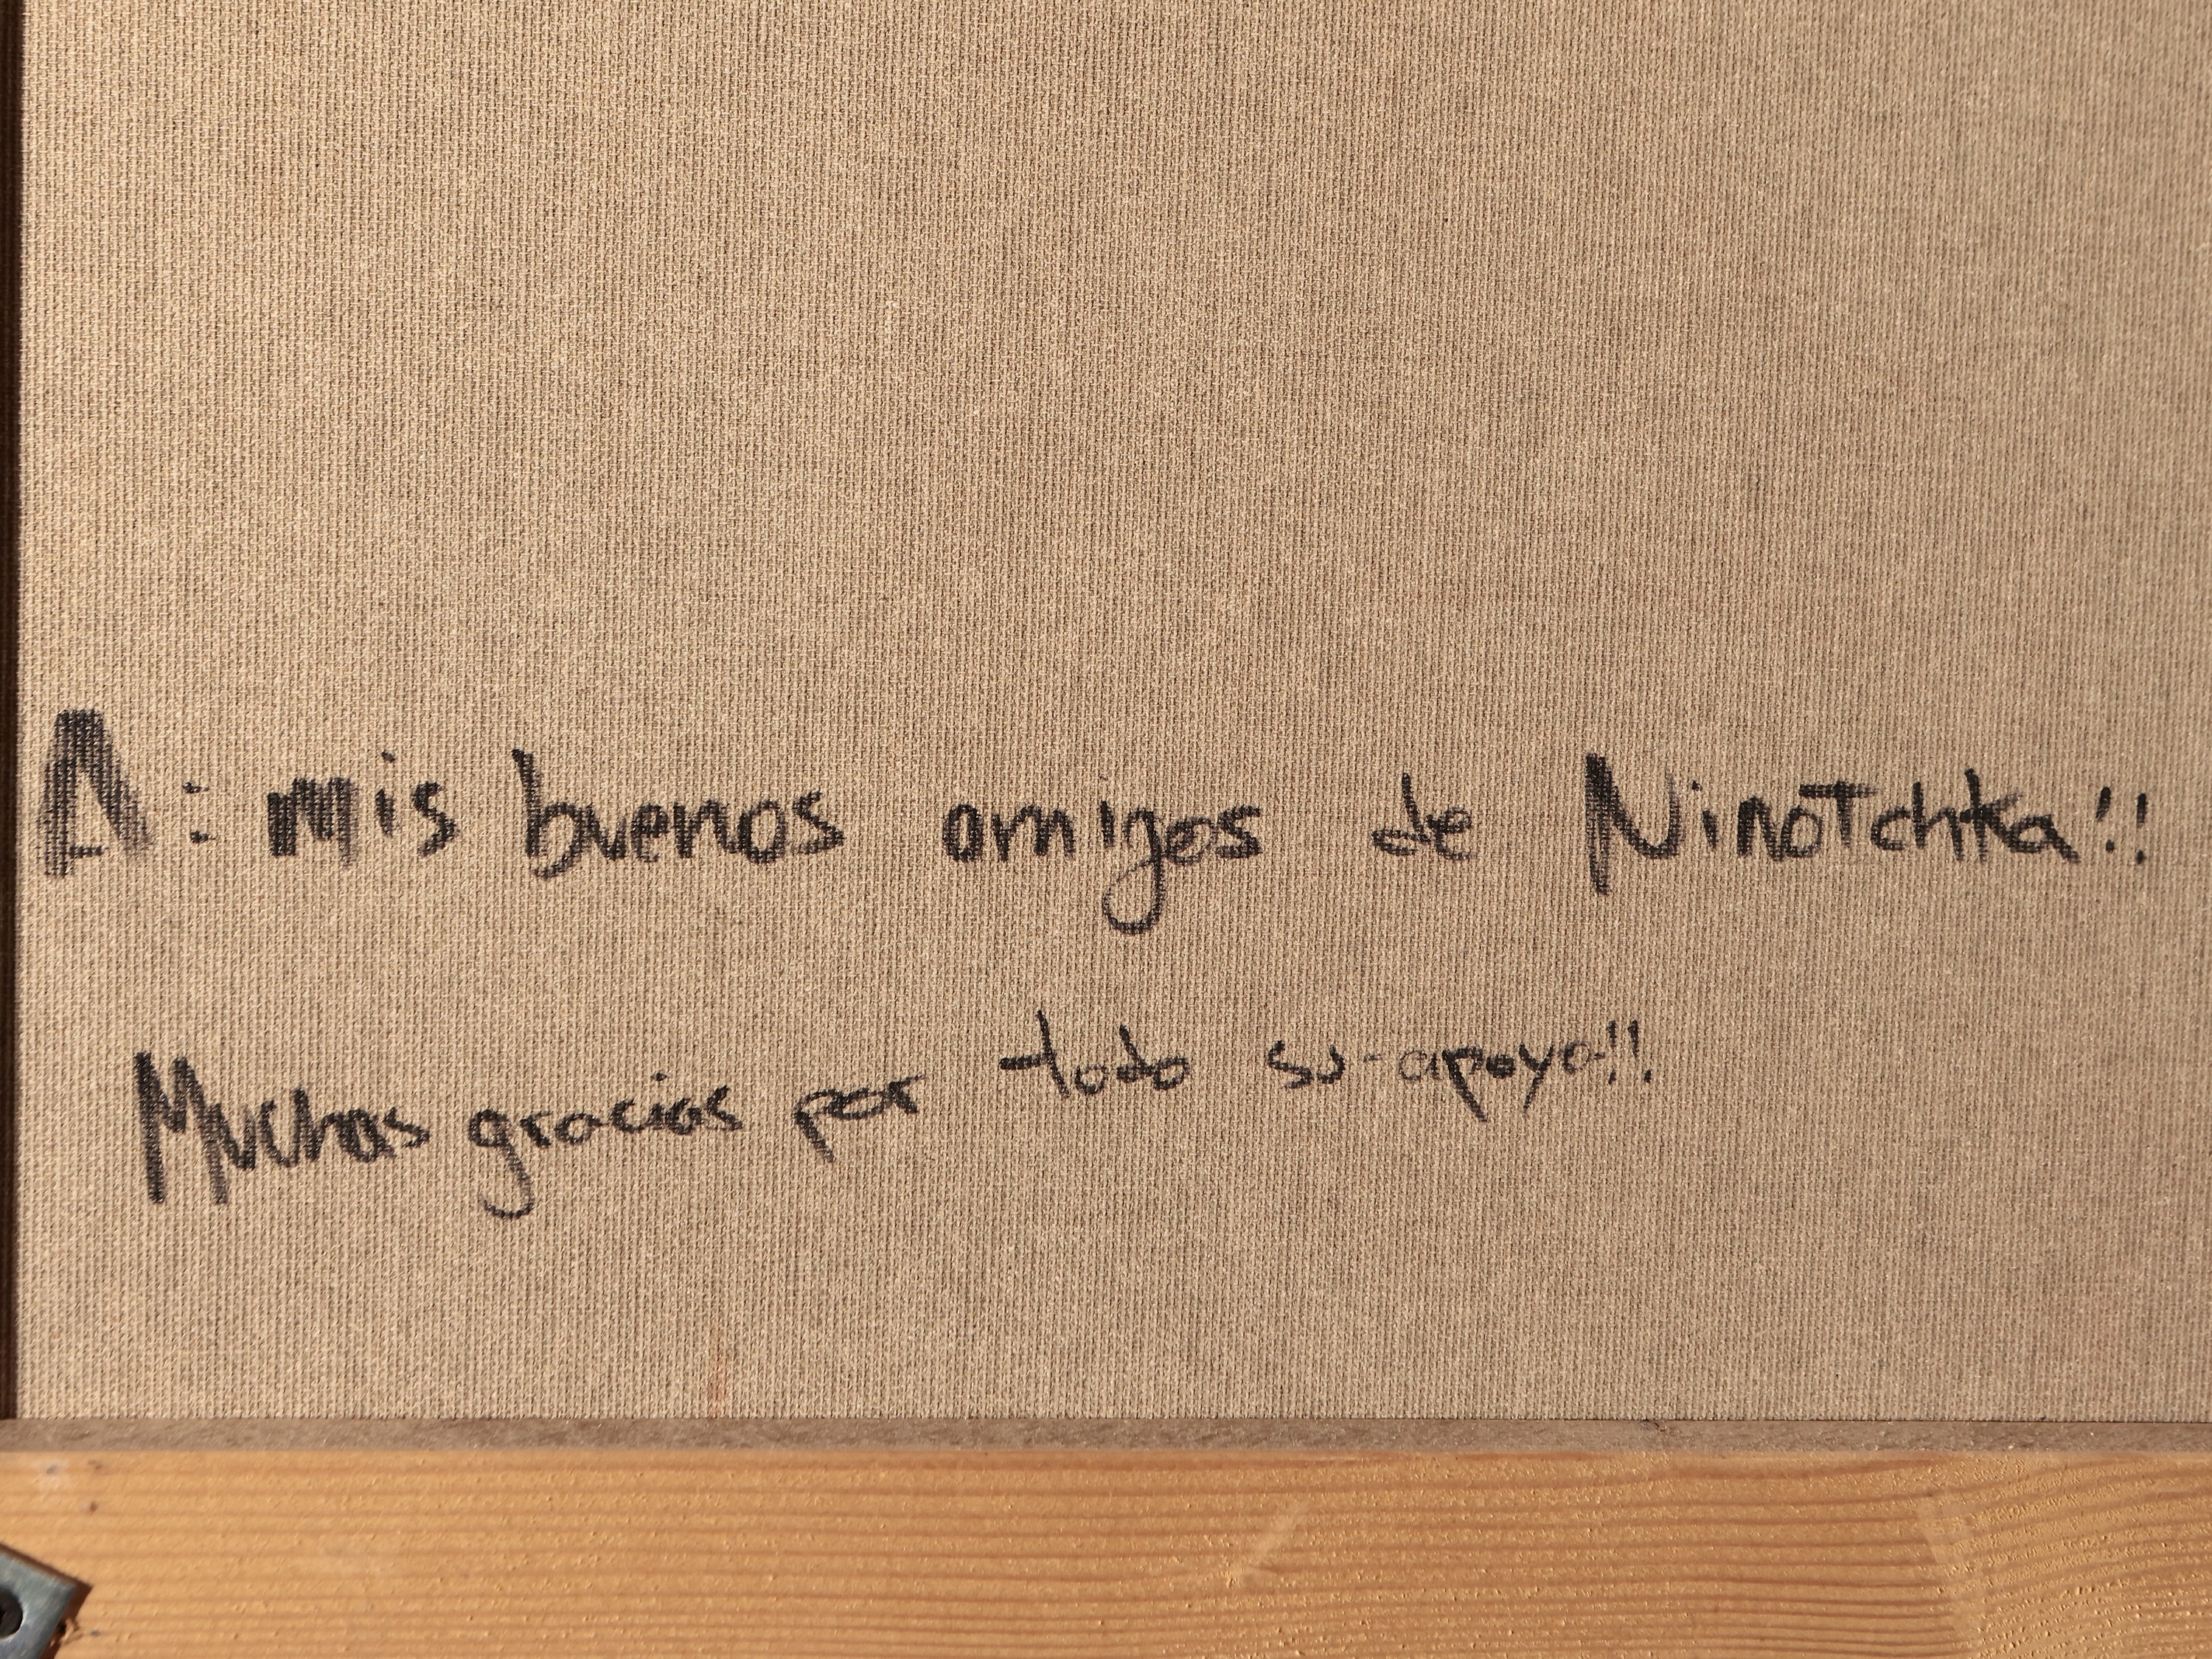 A: mis buenos amigos de Ninotchka!!
Muchas gracias por todo su apoyo!!